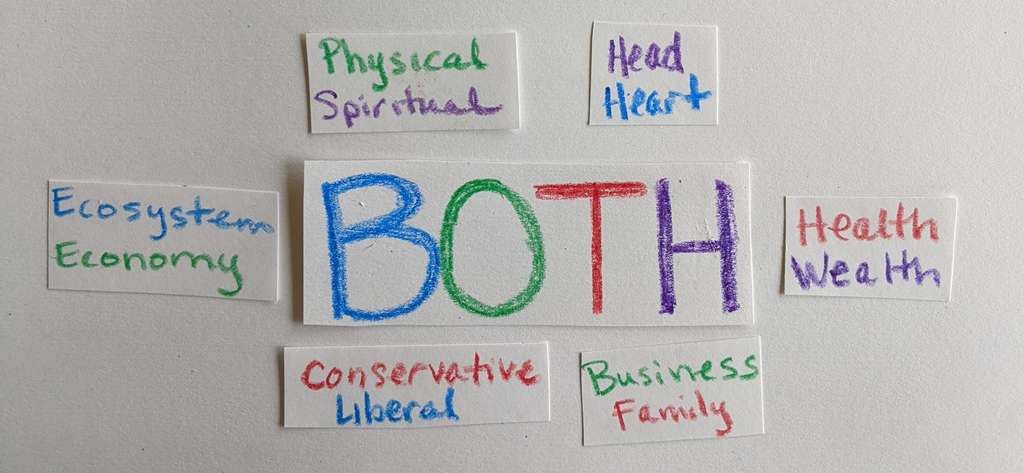 Physical
Spiritual
Head
Heart
Ecosystem
Economy
BOTH
Health
Wealth
Conservative
Liberal
Business
Family